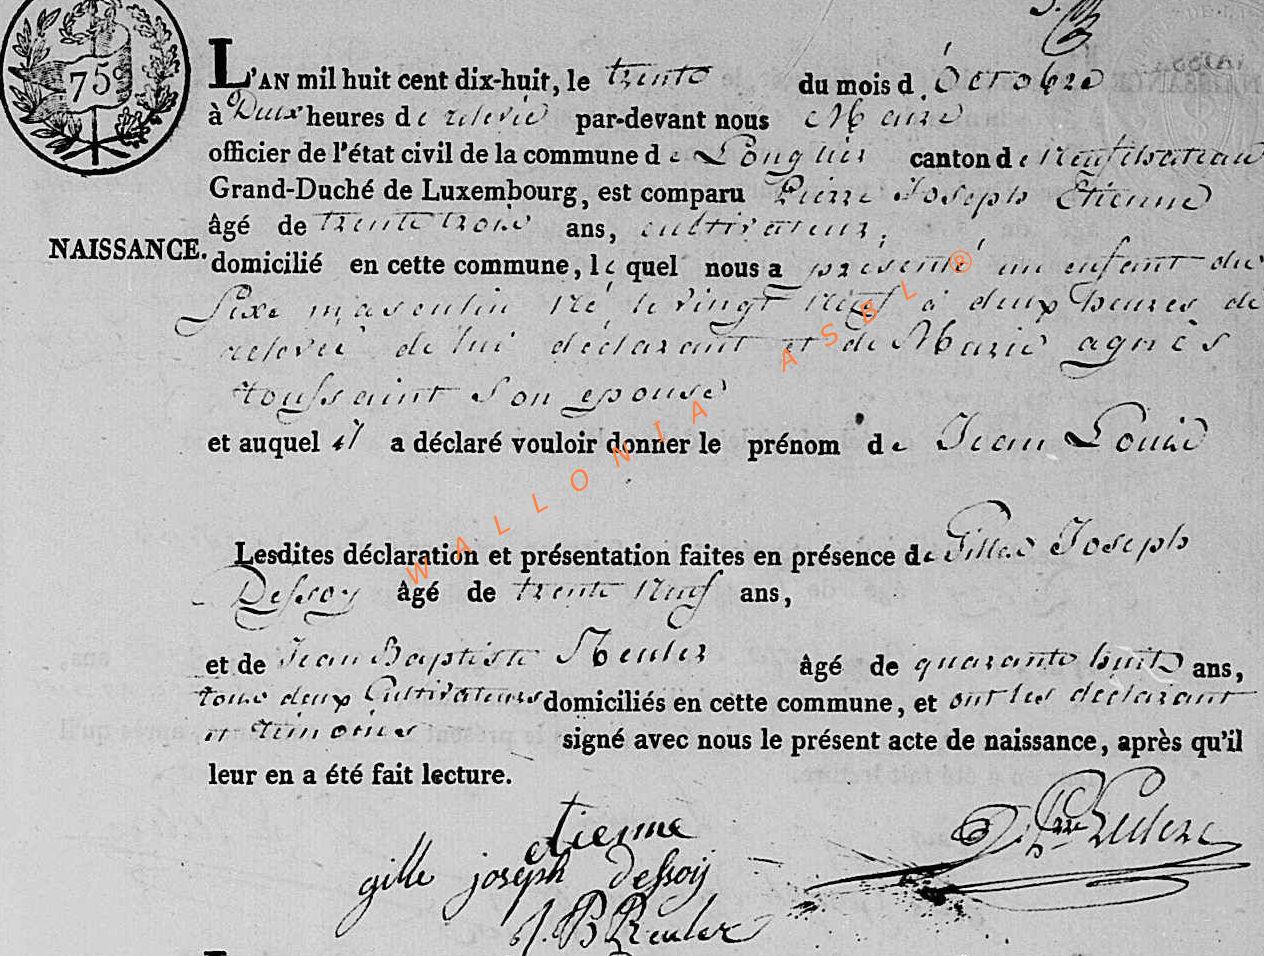 75c
L'AN mil huit cent dix-huit, le trente du mois d'octobre
à Deux heures de relevée par-devant nous Maire
officier de l'état civil de la commune de Longlier canton de Neufchateau
Grand-Duché de Luxembourg, est comparu Pierre Joseph Etienne
âgé de trente trois ans, cultivateur,
NAISSANCE.
domicilié en cette commune, le quel nous a présenté un enfant du
sexe masculin né le vingt neuf à deux heures de
relevée de lui déclarant et de Marie agnès
toussaint son epouse
et auquel il a déclaré vouloir donner le prénom de Jean Louis
Lesdites déclaration et présentation faites en présence de Gilles Joseph
Dessoy âgé de trente neuf ans,
et de Jean Baptiste Reuler âgé de quarante huit ans,
tous deux Cultivateurs domiciliés en cette commune, et ont les déclarant
et témoins signé avec nous le présent acte de naissance, après qu'il
leur en a été fait lecture.
etienne
gille joseph dessoij
J. B Reuler
WALLONIA ASBL ®